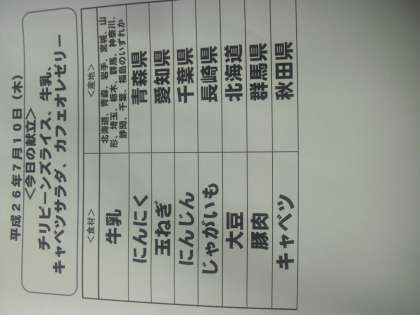 平成26年7月10日（木）
<今日の献立>
チリビーンズライス、牛乳、
キャベツサラダ、カフェオレゼリー
<食材> <産地>
牛乳 北海道、青森、岩手、宮城、山
形、埼玉、栃木、群馬、神奈川、
静岡、千葉、福島のいずれか
にんにく 青森県
玉ねぎ 愛知県
にんじん 千葉県
じゃがいも 長崎県
大豆 北海道
豚肉 群馬県
キャベツ 秋田県